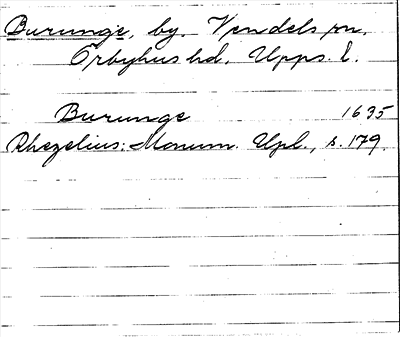 Burunge, by. Vendels sn.
Örbyhus hd. Upps. l.
Burunge 1635
Rhezelius: Monum. Upl., s. 179.